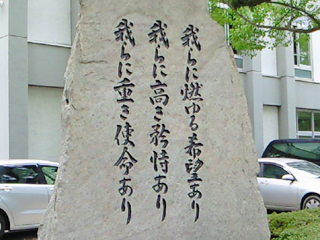 我らに燃ゆる希望あり
我らに高き矜恃あり
我らに重き使命あり